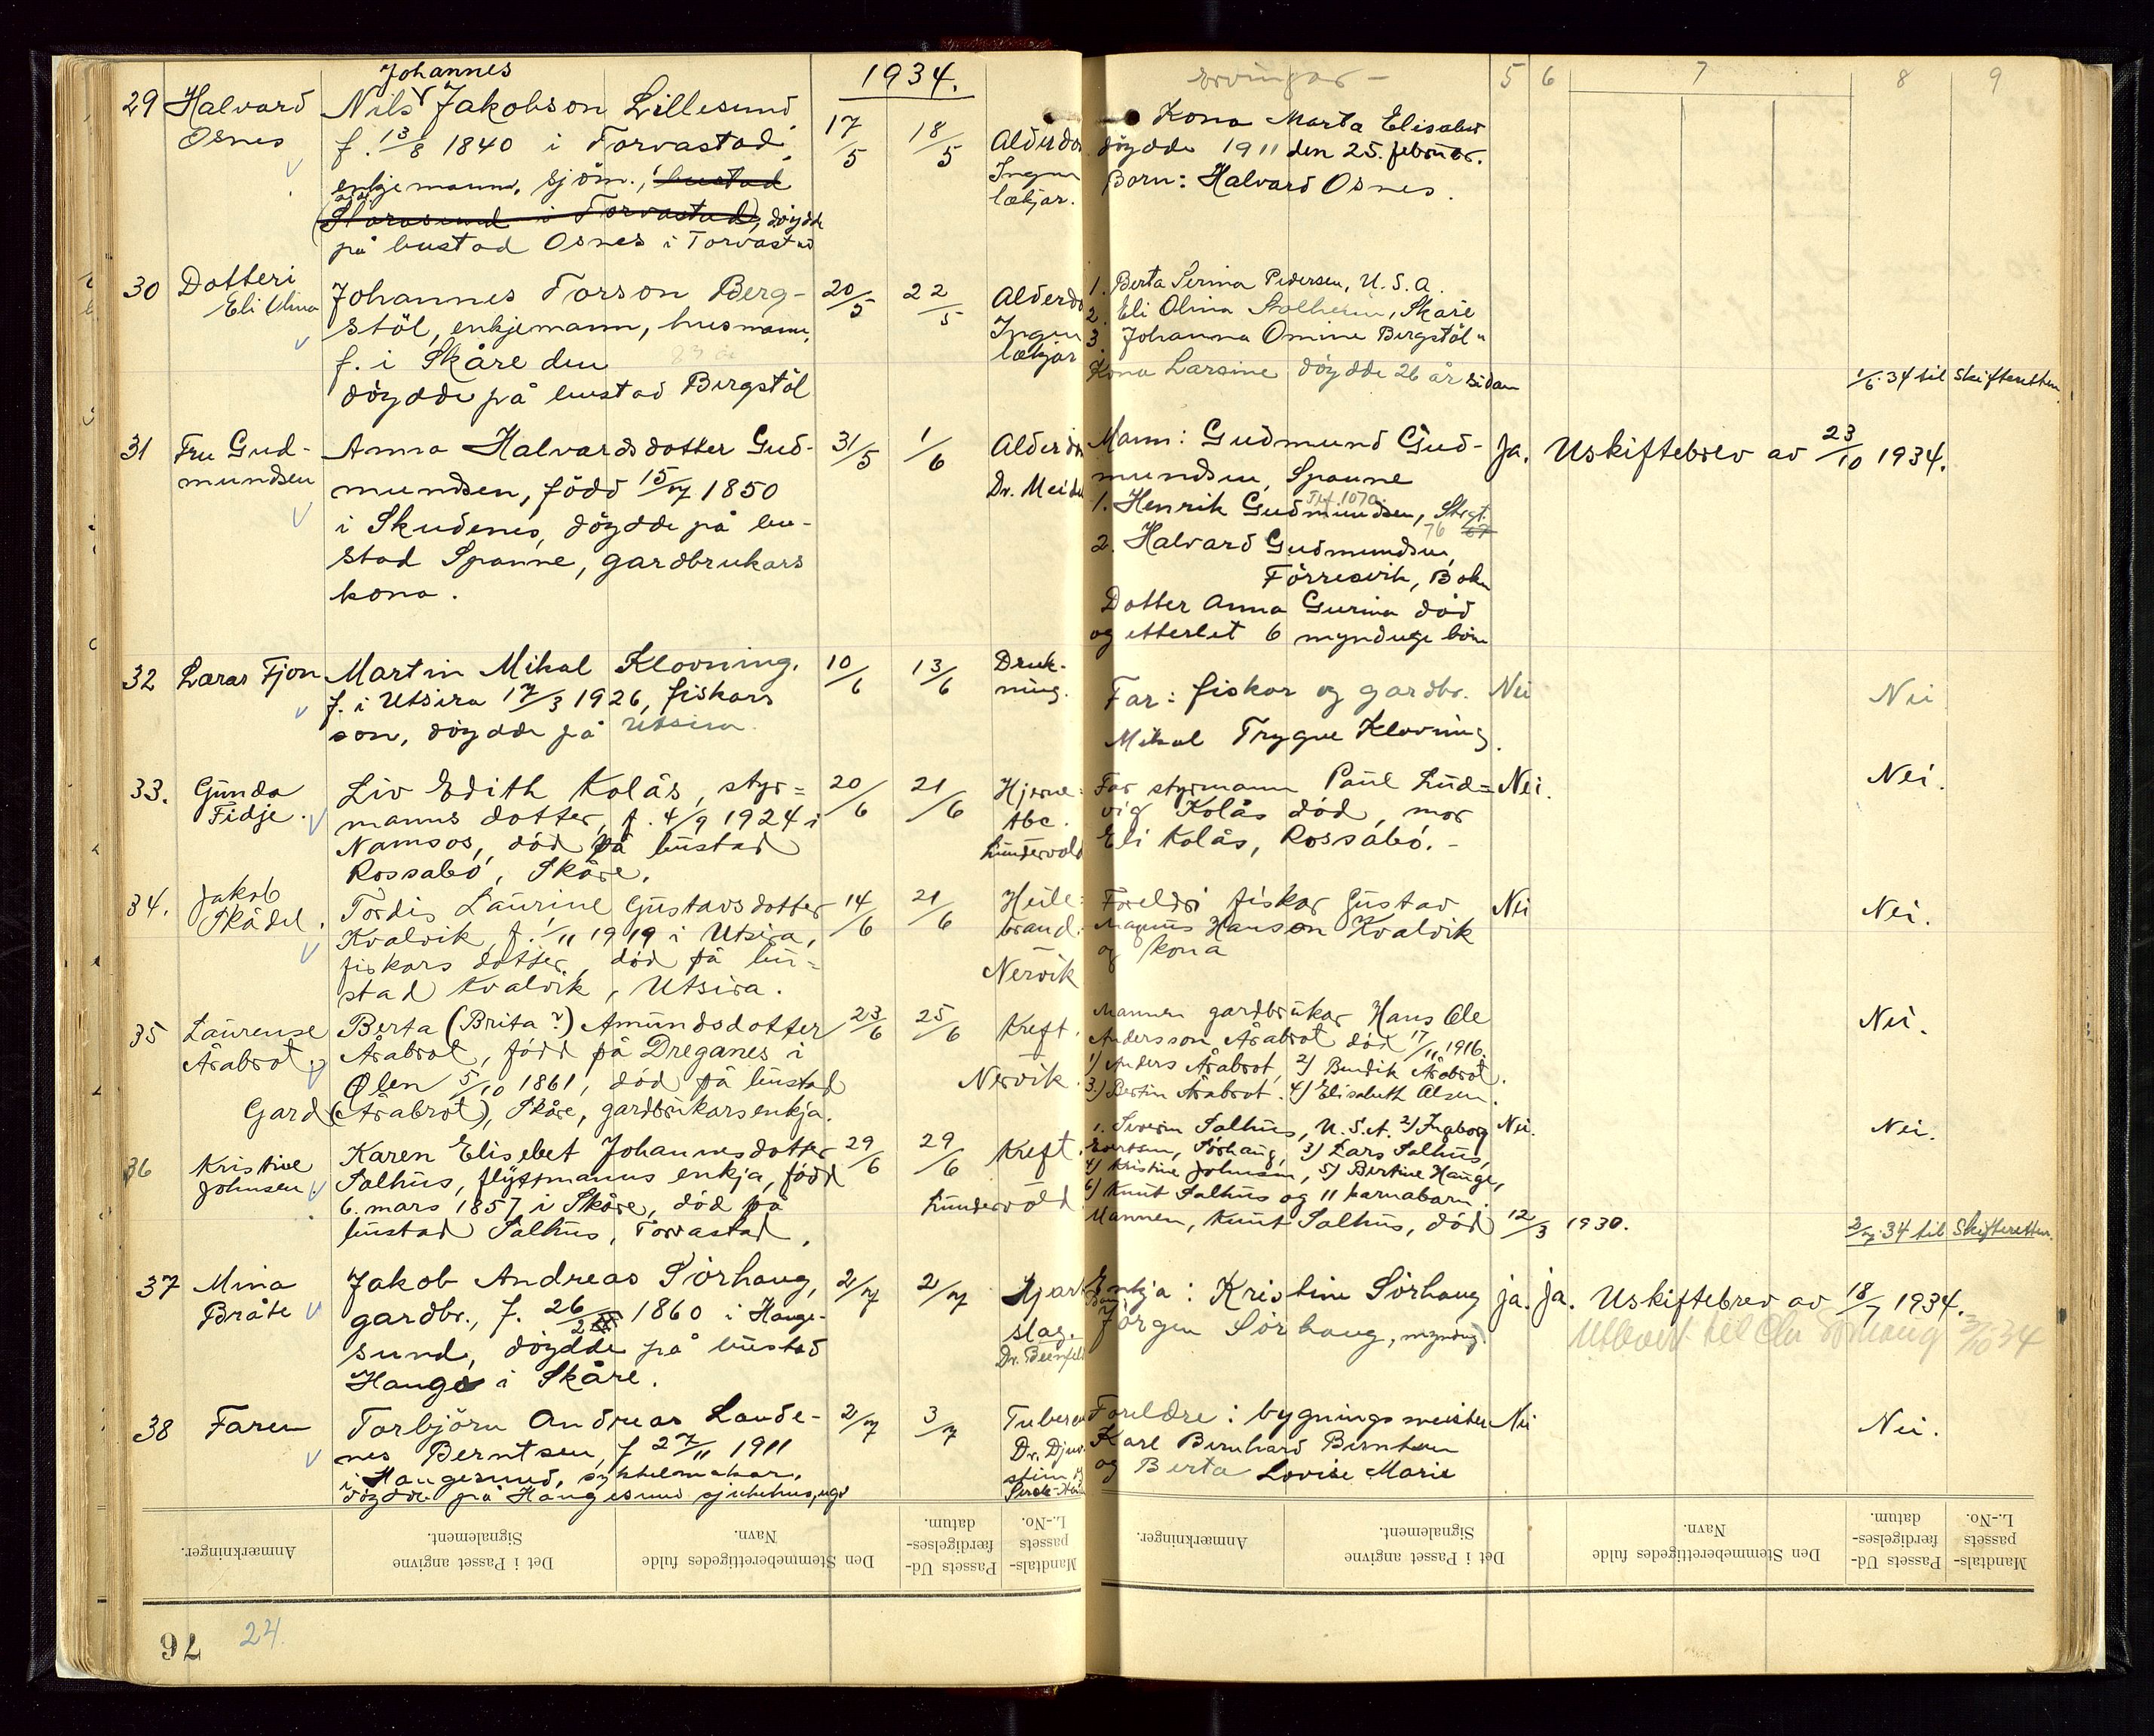 1934.
ervingar -
5 6 7 8 9
29 Halvard Osnes
Johannes
Nils Jakobson Lillesund
f. 13/8 1840 i Torvastad,
enkjemann, sjöm., bustad
i Torvastad), döydde
på bustad Osnes i Torvastad
17/5 18/5
Alderdo
Ingen
lækjar.
Kona Marta Elisabet
döydde 1911 den 25. februar.
Born: Halvard Osnes.
30 Dotteri
Eli Olina
Johannes Torson Berg-
stöl, enkjemann, husmann,
f. i Skåre den 83 år
döydde på bustad Bergstöl
20/5 22/5
Alderdo
Ingen
lækjar
1. Berta Serina Pedersen, U.S.A.
2. Eli Olina Stolheim, Skåre
3. Johanna Omine Bergstöl "
Kona Larsine döydde 26 år sidan
1/6. 34 til Skifteretten.
31 Fru Gud-
mundsen
Anna Halvardsdotter Gud-
mundsen, född 15/7 1850
i Skudenes, döydde på bu-
stad Spanne, gardbrukars
kona.
31/5 1/6
Alderdo
Dr. Meide
Mann: Gudmund Gud-
mundsen, Spanne
1. Henrik Gudmundsen, Strgt.
Tlf. 1070
76 67
2. Halvard Gudmundsen,
Förresvik, Bokn
Dotter Anna Gurina död
og etterlet 6 mynduge born
Ja. Uskiftebrev av 23/10 1934.
32 Lærar Fjon
Martin Mikal Klovning,
f. i Utsira 17/3 1926, fiskars
son, döydde på Utsira.
10/6 13/6
Druk-
ning.
Far: fiskar og gardbr.
Mikal Trygve Klovning.
Nei Nei
33. Gunda
Fidje.
Liv Edith Kolås, styr=
manns dotter, f. 4/9 1924 i
Namsos, död på bustad
Rossabö, Skåre.
20/6 21/6
Hjerne-
Abc.
Lundervold
Far styrmann Paul Lud=
vig Kolås död, mor
Eli Kolås, Rossabö. -
Nei. Nei.
34. Jakob
Skådel.
Tordis Laurine Gustavsdotter
Kvalvik f. 1/11 1919 i Utsira,
fiskars dotter, död på bu=
stad Kvalvik, Utsira.
14/6 21/6
Heile-
brand.
Nervik
Foreldri fiskar Gustav
Magnus Hanson Kvalvik
og kona
Nei Nei.
35 Laurense
Årabrot
Berta (Brita?) Amundsdotter
Årabrot, född på Dreganes i
Ølen 5/10 1861, död på bustad
Gard (Årabrot), Skåre, gardbrukarsenkja.
23/6 25/6
Kreft.
Nervik.
Mannen gardbrukar Hans Ole
Andersson Årabrot död 17/11 1916.
1) Anders Årabrot, 2) Bendik Årabrot.
3.) Bertin Årabrot. 4) Elisabeth Olsen.
Nei.
36 Kristine
Johnsen
Karen Elisebet Johannesdotter
Salhus, flyttmanns enkja, född
6. mars 1857 i Skåre, död på
bustad Salhus, Torvastad.
29/6 29/6
Kreft.
Lundervold
1. Severin Salhus, U.S.A. 2) Ingeborg
Evertsen, Sörhaug, 3) Lars Salhus,
4) Kristine Johnsen, 5) Bertine Hauge,
6) Knut Salhus og 11 barnabarn
Mannen, Knut Salhus, död 12/3 1930.
Nei. Nei.
2/7. 34 til Skifteretten.
37 Mina
Bråte
Jakob Andreas Sörhaug,
gardbr., f. 26/2 1860 i Hauge-
sund, döydde på bustad
Hauge i Skåre.
2/7 2/7
Hjart
slag.
Enkja: Kristine Sörhaug
Jörgen Sörhaug, myndig
ja. ja. Uskiftebrev av 18/7 1934.
Utlevert til 3/10 34
38 Faren
Torbjörn Andreas Lande-
nes Berntsen, f 27/11 1911
i Haugesund, syklelmakar,
döydde på Haugesund sjukehus, ugi
2/7 3/7
Tuberc
Foreldre: bygningsmeister
Karl Bernhard Berntsen
og Berta Lovise Marie
Nei Nei.
Mandtals-passets L.-No.
Passets Ud-færdigelses-datum.
Den Stemmeberettigedes fulde Navn.
Det i Passet angivne Signalement.
Anmærkninger.
Mandtals-passets L.-No.
Passets Ud-færdigelses-datum.
Den Stemmeberettigedes fulde Navn.
Det i Passet angivne Signalement.
Anmærkninger.
76 24.